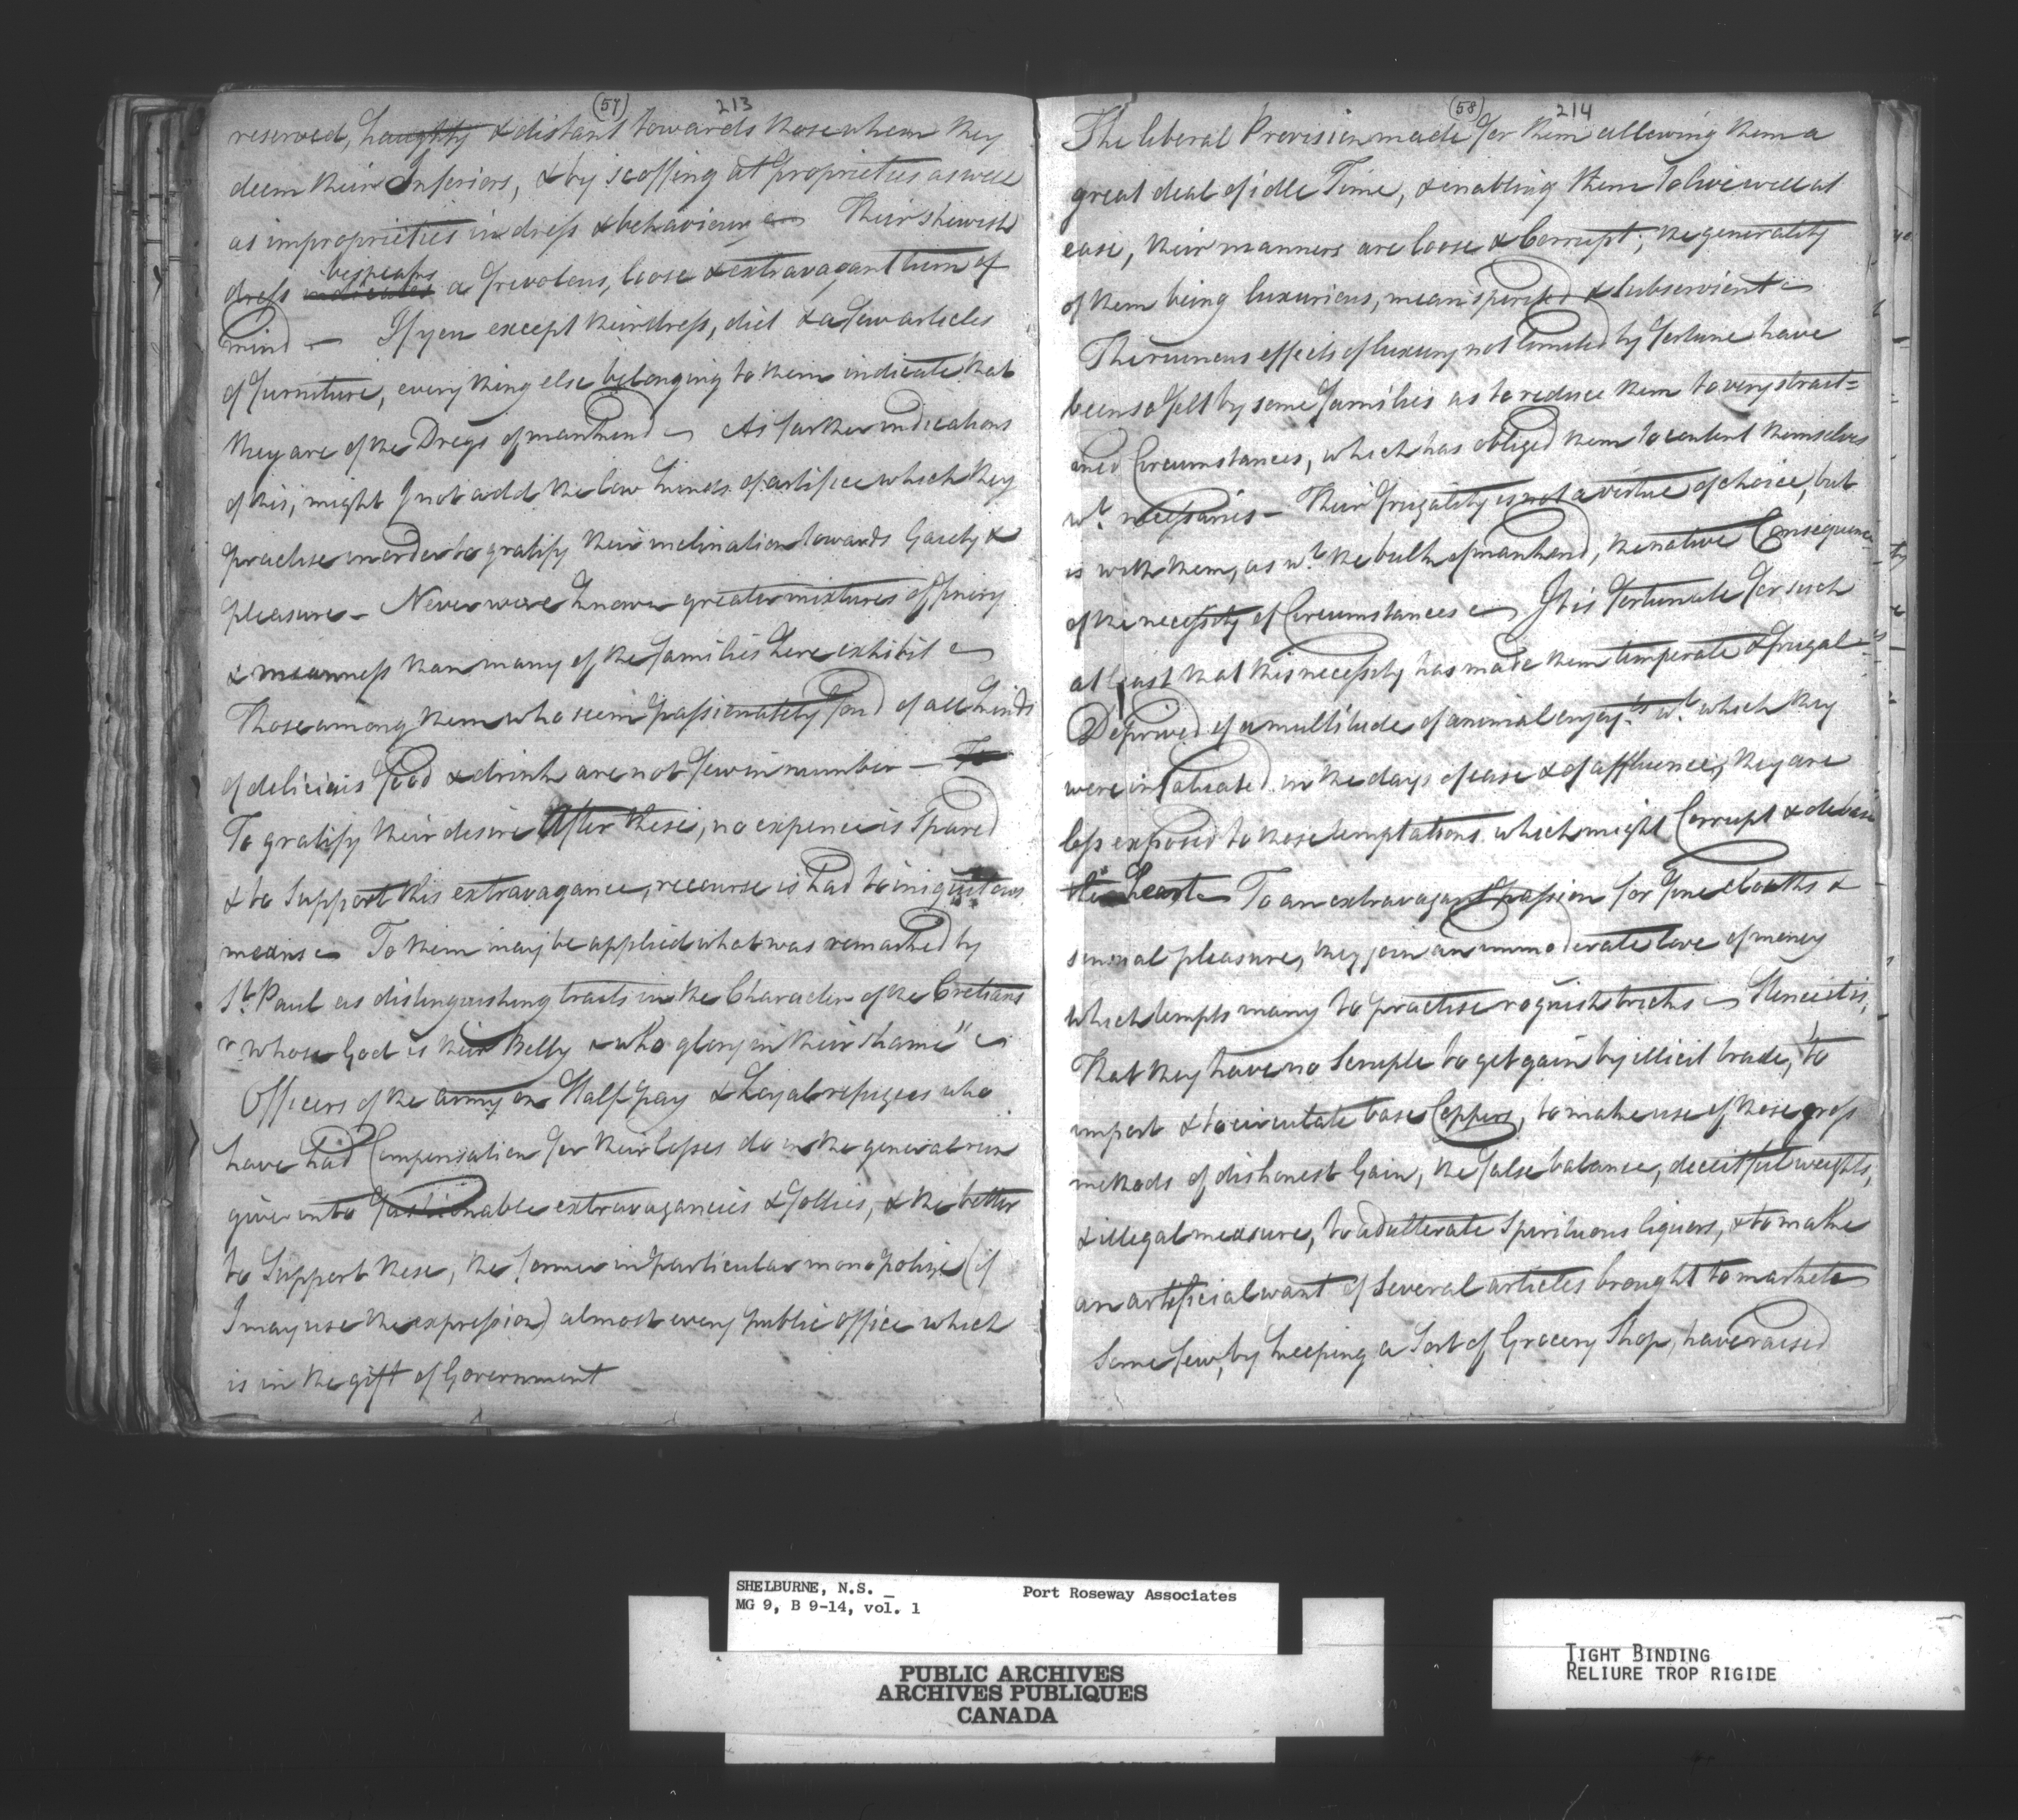 (57) 213
reserved, haughty & distant towards those whom they
deem their Inferiors, & by scoffing at proprieties as well
as improprieties in dress & behaviour — Their shewish
bespeaks
dress indicates a frivolous, loose & extravagant turn of
mind — If you except their dress, diet & a few articles
of furniture, every thing else belonging to them indicate that
they are of the Dregs of mankind — As further indications
of this, might I not add the low kinds of artifice which they
practise in order to gratify their inclination towards Gaiety &
pleasure — Never were known greater mixtures of finery
& meanness than many of the families here exhibit —
Those among them who seem passionately fond of all kinds
of delicious food & drink are not few in number — To
To gratify their desire After these, no expence is Spared
& to Support this extravagance, recourse is had to iniquitous
means — To them may be applied what was remarked by
St. Paul as distinguishing traits in the Character of the Cretians
"whose God is their Belly & who glory in their shame" —
Officers of the army on Half pay & Loyal refugees who
have had Compensation for their losses do in the general run
give into fashionable extravagancies & follies, & the better
to Support these, the former in particular monopolize (if
I may use the expression) almost every public office which
is in the gift of Government
(58) 214
The liberal Provision made for them allowing them a
great deal of idle Time, & enabling them to live well at
ease, their manners are loose & Corrupt; the generality
of them being luxurious, mean spirited & Subservient —
The ruinous effects of luxury not limited by fortune have
been so felt by some families as to reduce them to very strait=
ned Circumstances, which has obliged them to content themselves
wt. necessaries — Their frugality is not a virtue of choice, but
is with them, as wt. the bulk of mankind, the native Consequence
of the necessity of Circumstances — It is fortunate for such
at least that this necessity has made them temperate & frugal —
Deprived of a multitude of animal enjoyts. wt. which they
were infatuated in the days of ease & of affluence, they are
less exposed to those temptations which might Corrupt & debase
the heart — To an extravagant passion for fine cloaths &
sensual pleasure, they join an immoderate love of money
which tempts many to practise roguish tricks — Hence it is,
That they have no Scruple to get gain by illicit trade, to
import & to circulate base Coppers, to make use of those gross
methods of dishonest Gain, the false balance, deceitful weights,
& illegal measure, to adulterate Spirituous liquors, & to make
an artificial want of Several articles brought to market —
Some few, by keeping a Sort of Grocery Shop, have raised
SHELBURNE, N.S. _ Port Roseway Associates
MG 9, B 9-14, vol. 1
PUBLIC ARCHIVES
ARCHIVES PUBLIQUES
CANADA
TIGHT BINDING
RELIURE TROP RIGIDE